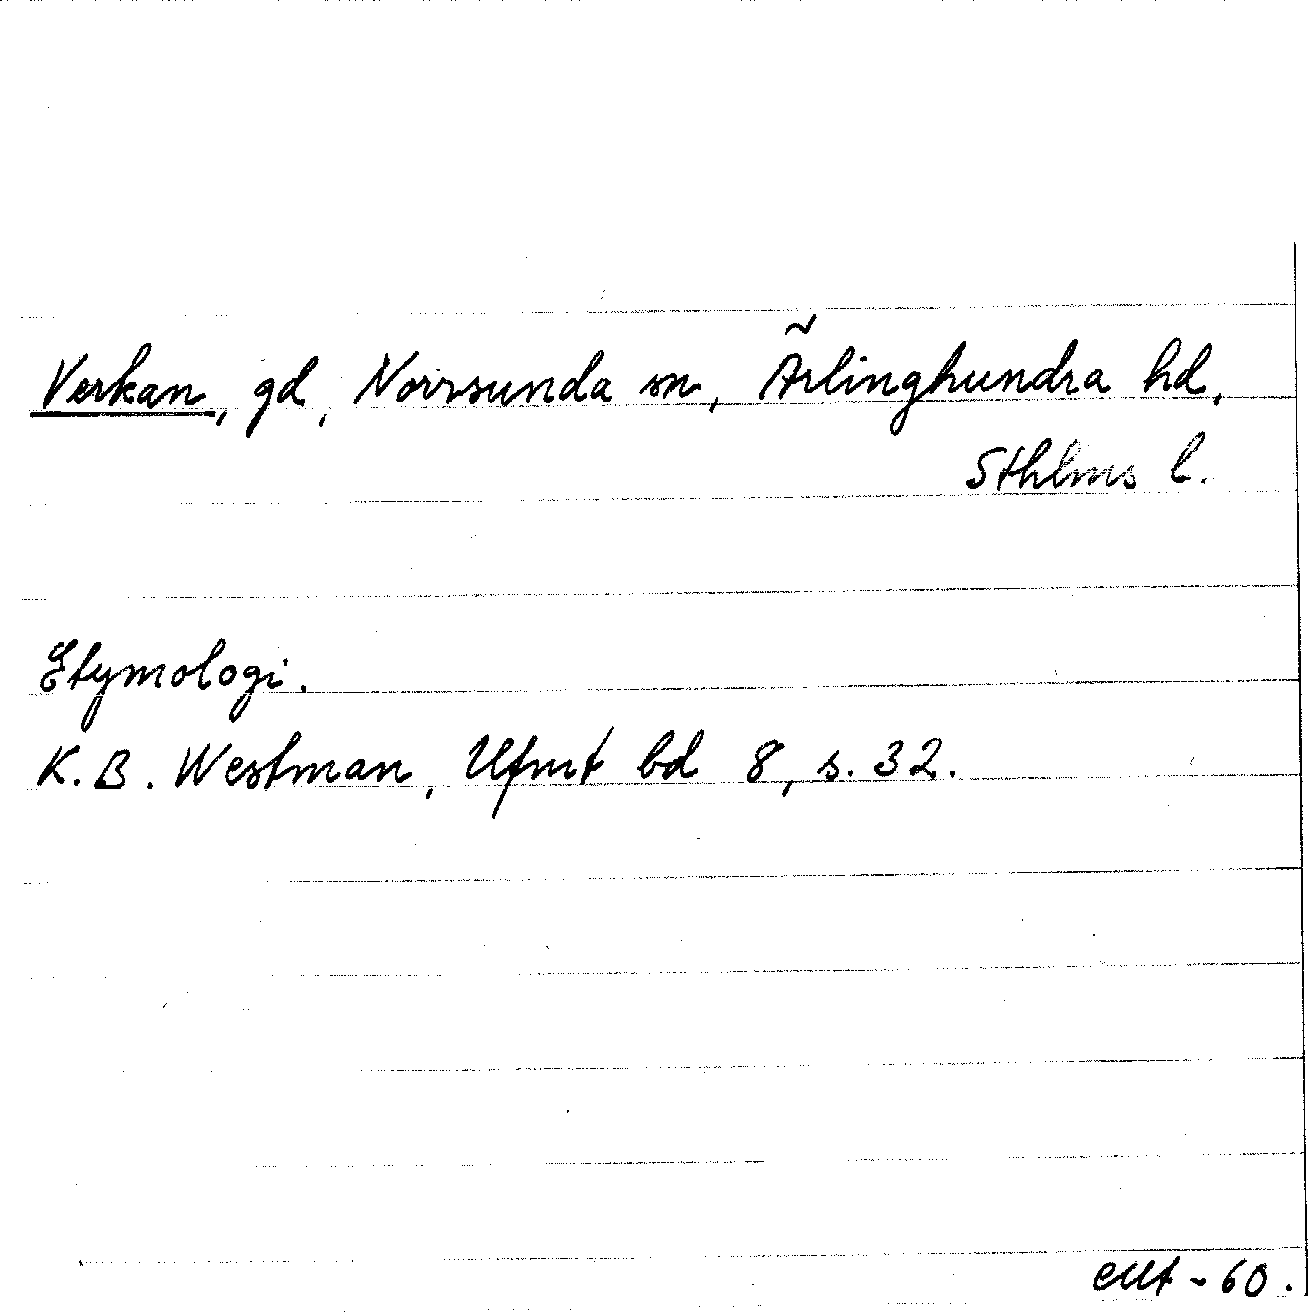 Verkan, gd, Norrsunda sn, Ärlinghundra hd,
Sthlms l.
Etymologi.
K. B. Westman, Ufmt bd 8, s. 32.
- 60.